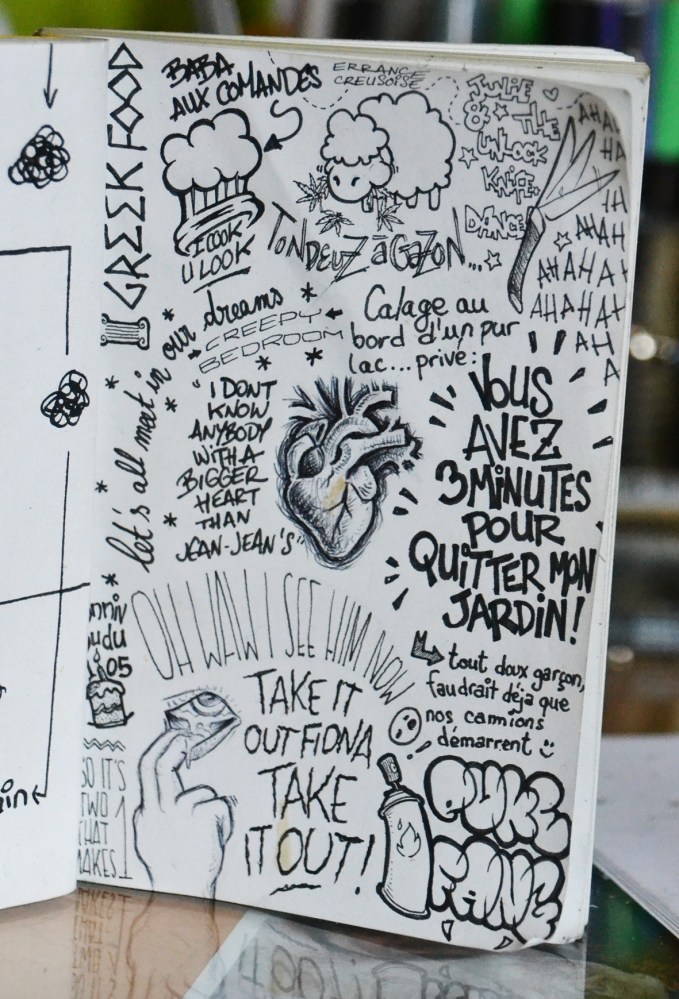 GREEK FOOD
BABA
AUX COMANDES
I COOK
U LOOK
ERRANCE
CREUSOISE
TONDEUZ à GAZON...
JULIE
& THE
UNLOCK
KNIFE
DANCE
AHAH
HA
HA
AHAH
AHAHA
AHAHAH
AH
A
let's all meet in our dreams
CREEPY
BEDROOM
Calage au
bord d'un pur
lac... privé:
"I DONT
KNOW
ANYBODY
WITH A
BIGGER
HEART
THAN
JEAN-JEAN'S"
VOUS
AVEZ
3 MiNUTES
POUR
QUiTTER MON
JARDiN!
tout doux garçon,
faudrait déjà que
nos camions
démarrent
OH WAW I SEE HIM NOW
TAKE IT
OUT FIONA
TAKE
IT OUT!
05
SO IT'S
TWO
THAT
MAKES 1
PUKE
FANZ